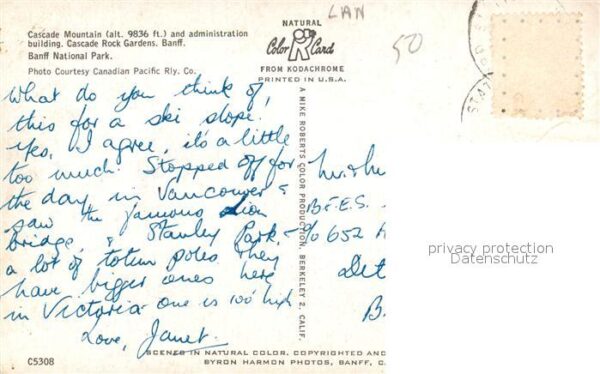 LAN
50
Cascade Mountain (alt. 9836 ft.) and administration
building. Cascade Rock Gardens. Banff.
Banff National Park.
Photo Courtesy Canadian Pacific Rly. Co.
NATURAL
Color Card
FROM KODACHROME
PRINTED IN U.S.A.
What do you think of,
this for a ski slope.
Yes, I agree, it's a little
too much! Stopped off for
the day, in Vancouver &
saw the famous Lion
bridge, & Stanley Park, -
a lot of totem poles they
have bigger ones here
in Victoria one is 100' high
Love, Janet.
A MIKE ROBERTS COLOR PRODUCTION, BERKELEY 2, CALIF.
Mr. &
B.F.E.S.
c/o 652
Det
B.
privacy protection
Datenschutz
C5308
SCENES IN NATURAL COLOR. COPYRIGHTED AND
BYRON HARMON PHOTOS, BANFF, C